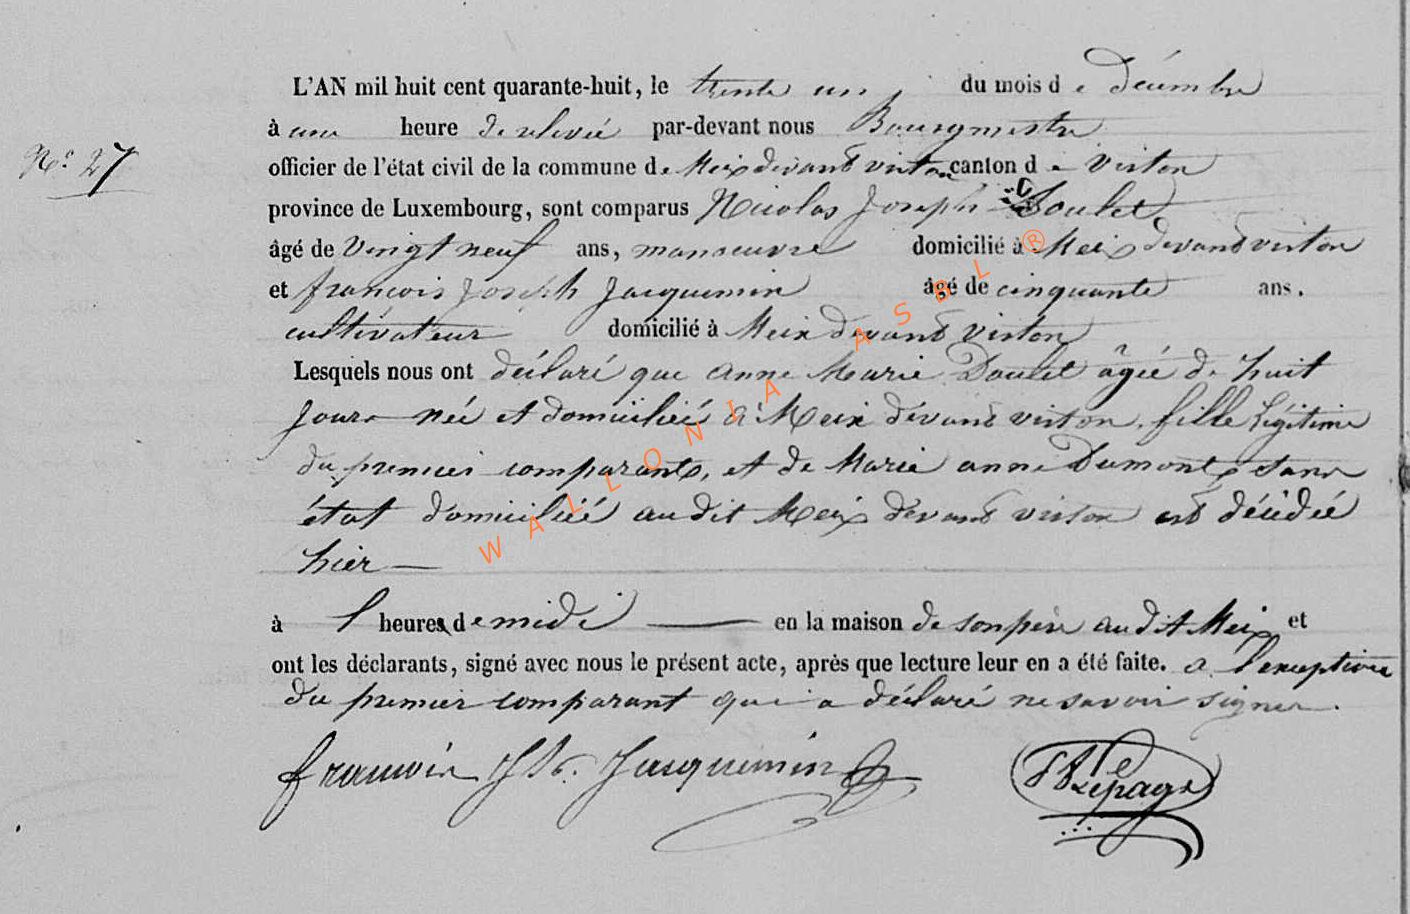 L'AN mil huit cent quarante-huit, le trente un, du mois de Décembre
à une heure de relevée par-devant nous Bourgmestre
N° 27
officier de l'état civil de la commune de Meix devant virton canton de Virton
province de Luxembourg, sont comparus Nicolas Joseph Doulet
âgé de vingt neuf ans, manoeuvre domicilié à Meix devant virton
et françois Joseph Jacquemin âgé de cinquante ans.
cultivateur domicilié à Meix devant virton
Lesquels nous ont déclaré que anne Marie Doulet âgée de huit
jours née et domiciliée à Meix devant virton, fille légitime
du premier comparants, et de Marie anne Dumont, sans
état domiciliée audit Meix devant virton est décédée
hier —
à 1 heures de midi — en la maison de son père audit Meix et
ont les déclarants, signé avec nous le présent acte, après que lecture leur en a été faite. a l'exception
du premier comparant qui a déclaré ne savoir signer.
françois Jh. Jacquemin Lepage
WALLONIA ASBL ®